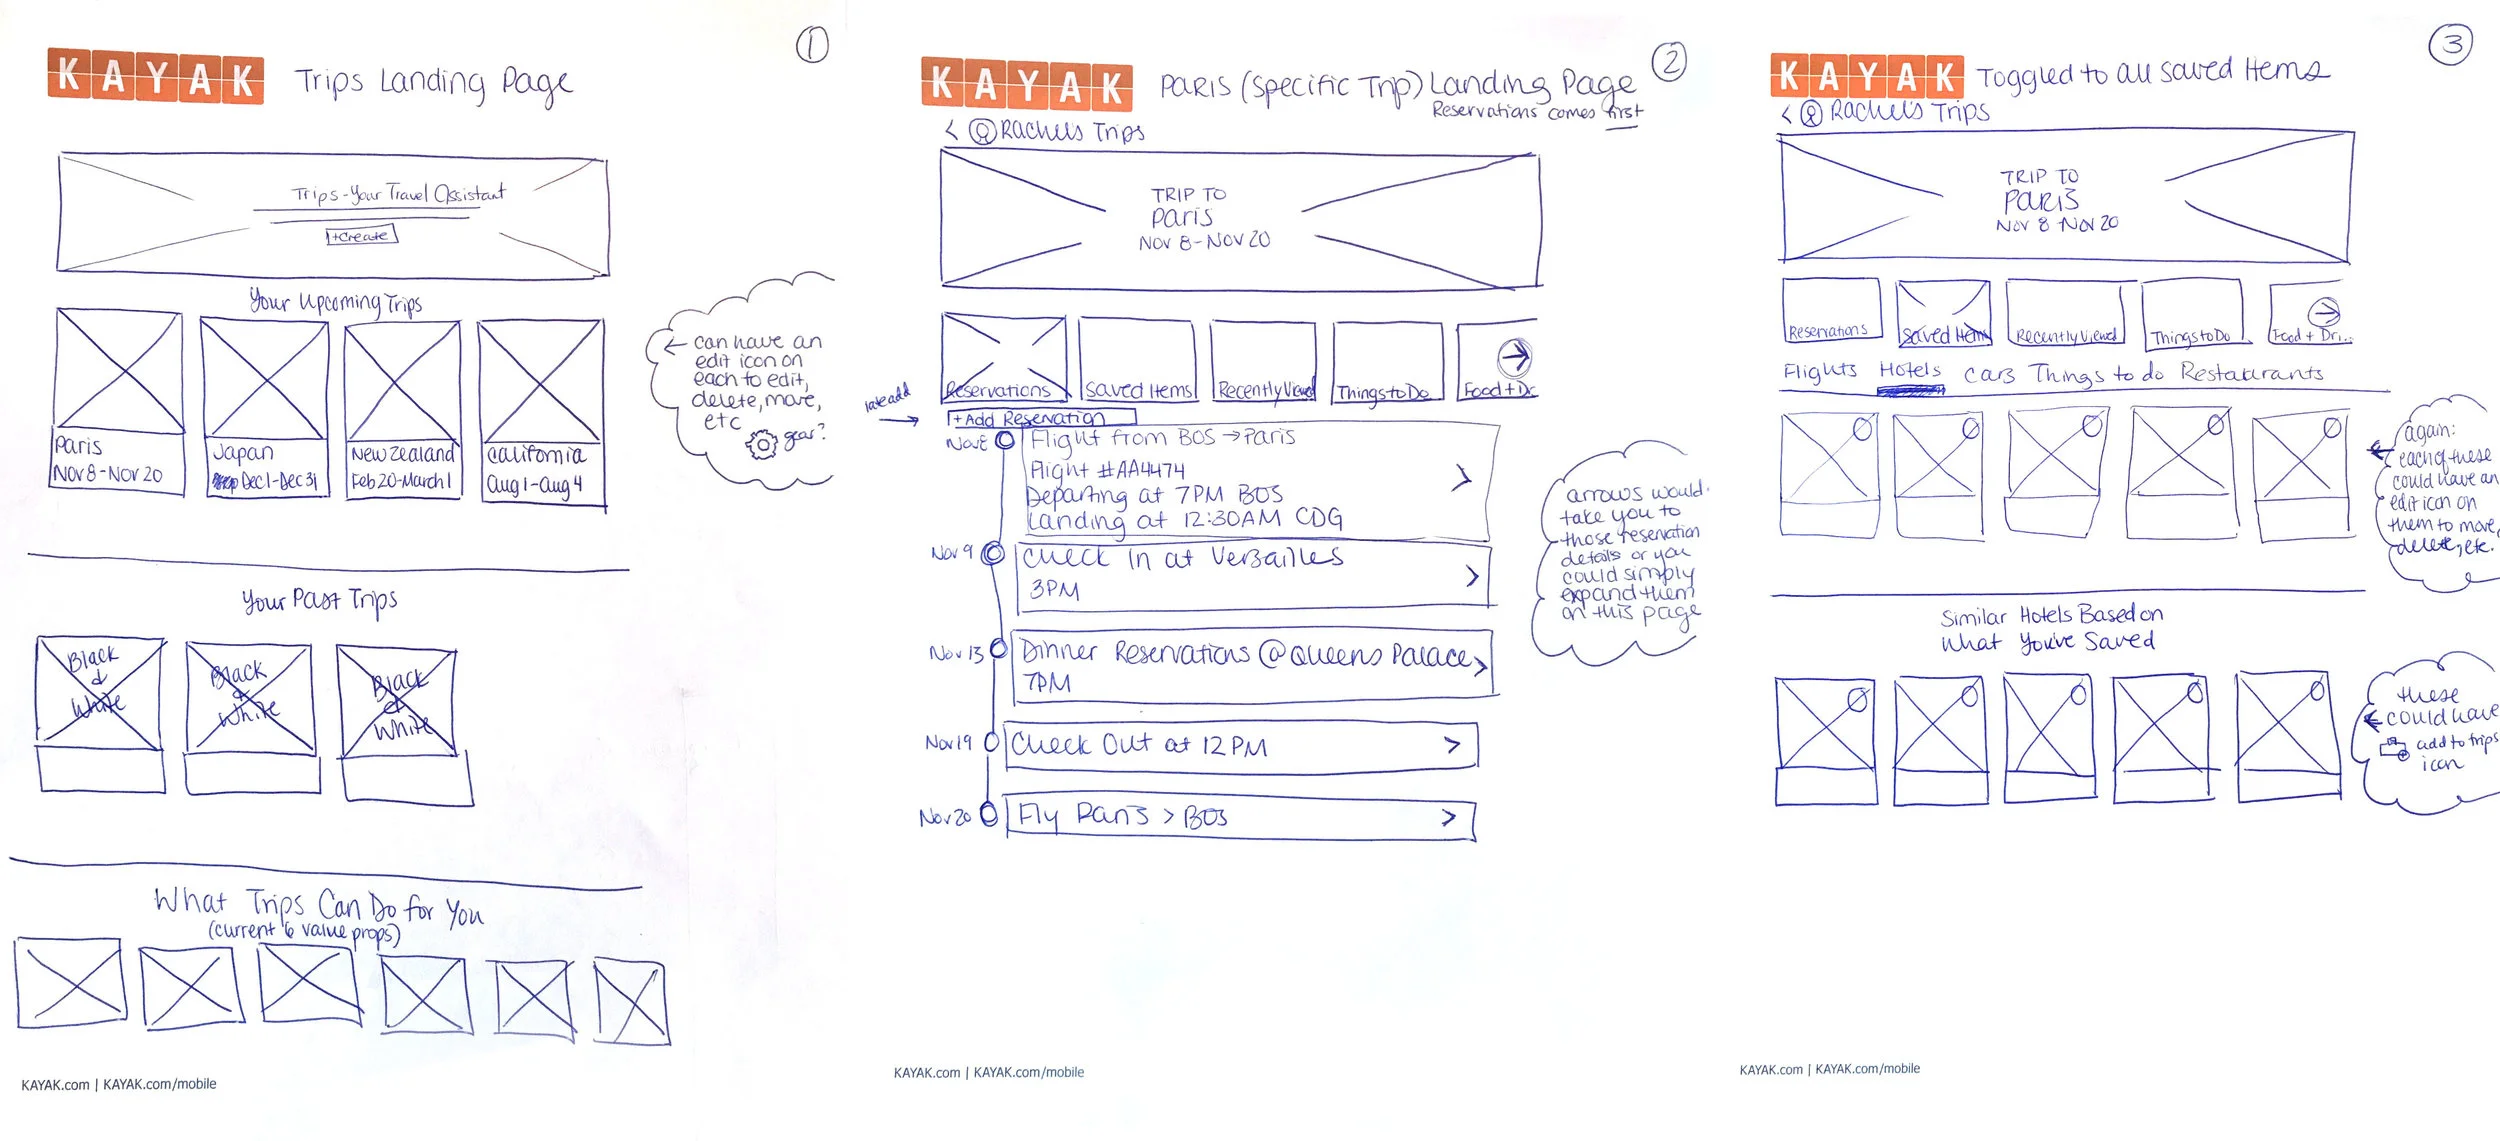 KAYAK Trips Landing Page
1
Trips - Your Travel Assistant
+Create
Your Upcoming Trips
Paris
Nov 8 - Nov 20
Japan
Dec 1 - Dec 31
New Zealand
Feb 20 - March 1
California
Aug 1 - Aug 4
can have an
edit icon on
each to edit,
delete, move,
etc
gear?
Your Past Trips
Black
&
White
Black
&
White
Black
&
White
What Trips Can Do for You
(current 6 value props)
KAYAK.com | KAYAK.com/mobile
KAYAK PARIS (Specific Trip) Landing Page
2
Reservations comes first
< Rachel's Trips
TRIP TO
Paris
Nov 8 - Nov 20
Reservations
Saved Items
Recently Viewed
Things to Do
Food + Dr
add
+ Add Reservation
Nov 8
Flight from BOS → Paris
Flight #AA4474
Departing at 7PM BOS
Landing at 12:30AM CDG
>
Nov 9
Check In at Versailles
3PM
>
Nov 13
Dinner Reservations @ Queens Palace
7PM
>
Nov 19
Check Out at 12PM
>
Nov 20
Fly Paris > BOS
>
arrows would
take you to
those reservation
details or you
could simply
expand them
on this page
KAYAK.com | KAYAK.com/mobile
KAYAK Toggled to all saved Items
3
< Rachel's Trips
TRIP TO
PARIS
Nov 8 - Nov 20
Reservations
Saved Items
Recently Viewed
Things to Do
Food + Dri..
Flights Hotels Cars Things to do Restaurants
again:
each of these
could have an
edit icon on
them to move,
delete, etc.
Similar Hotels Based on
What You've Saved
these
could have
add to trips
icon
KAYAK.com | KAYAK.com/mobile